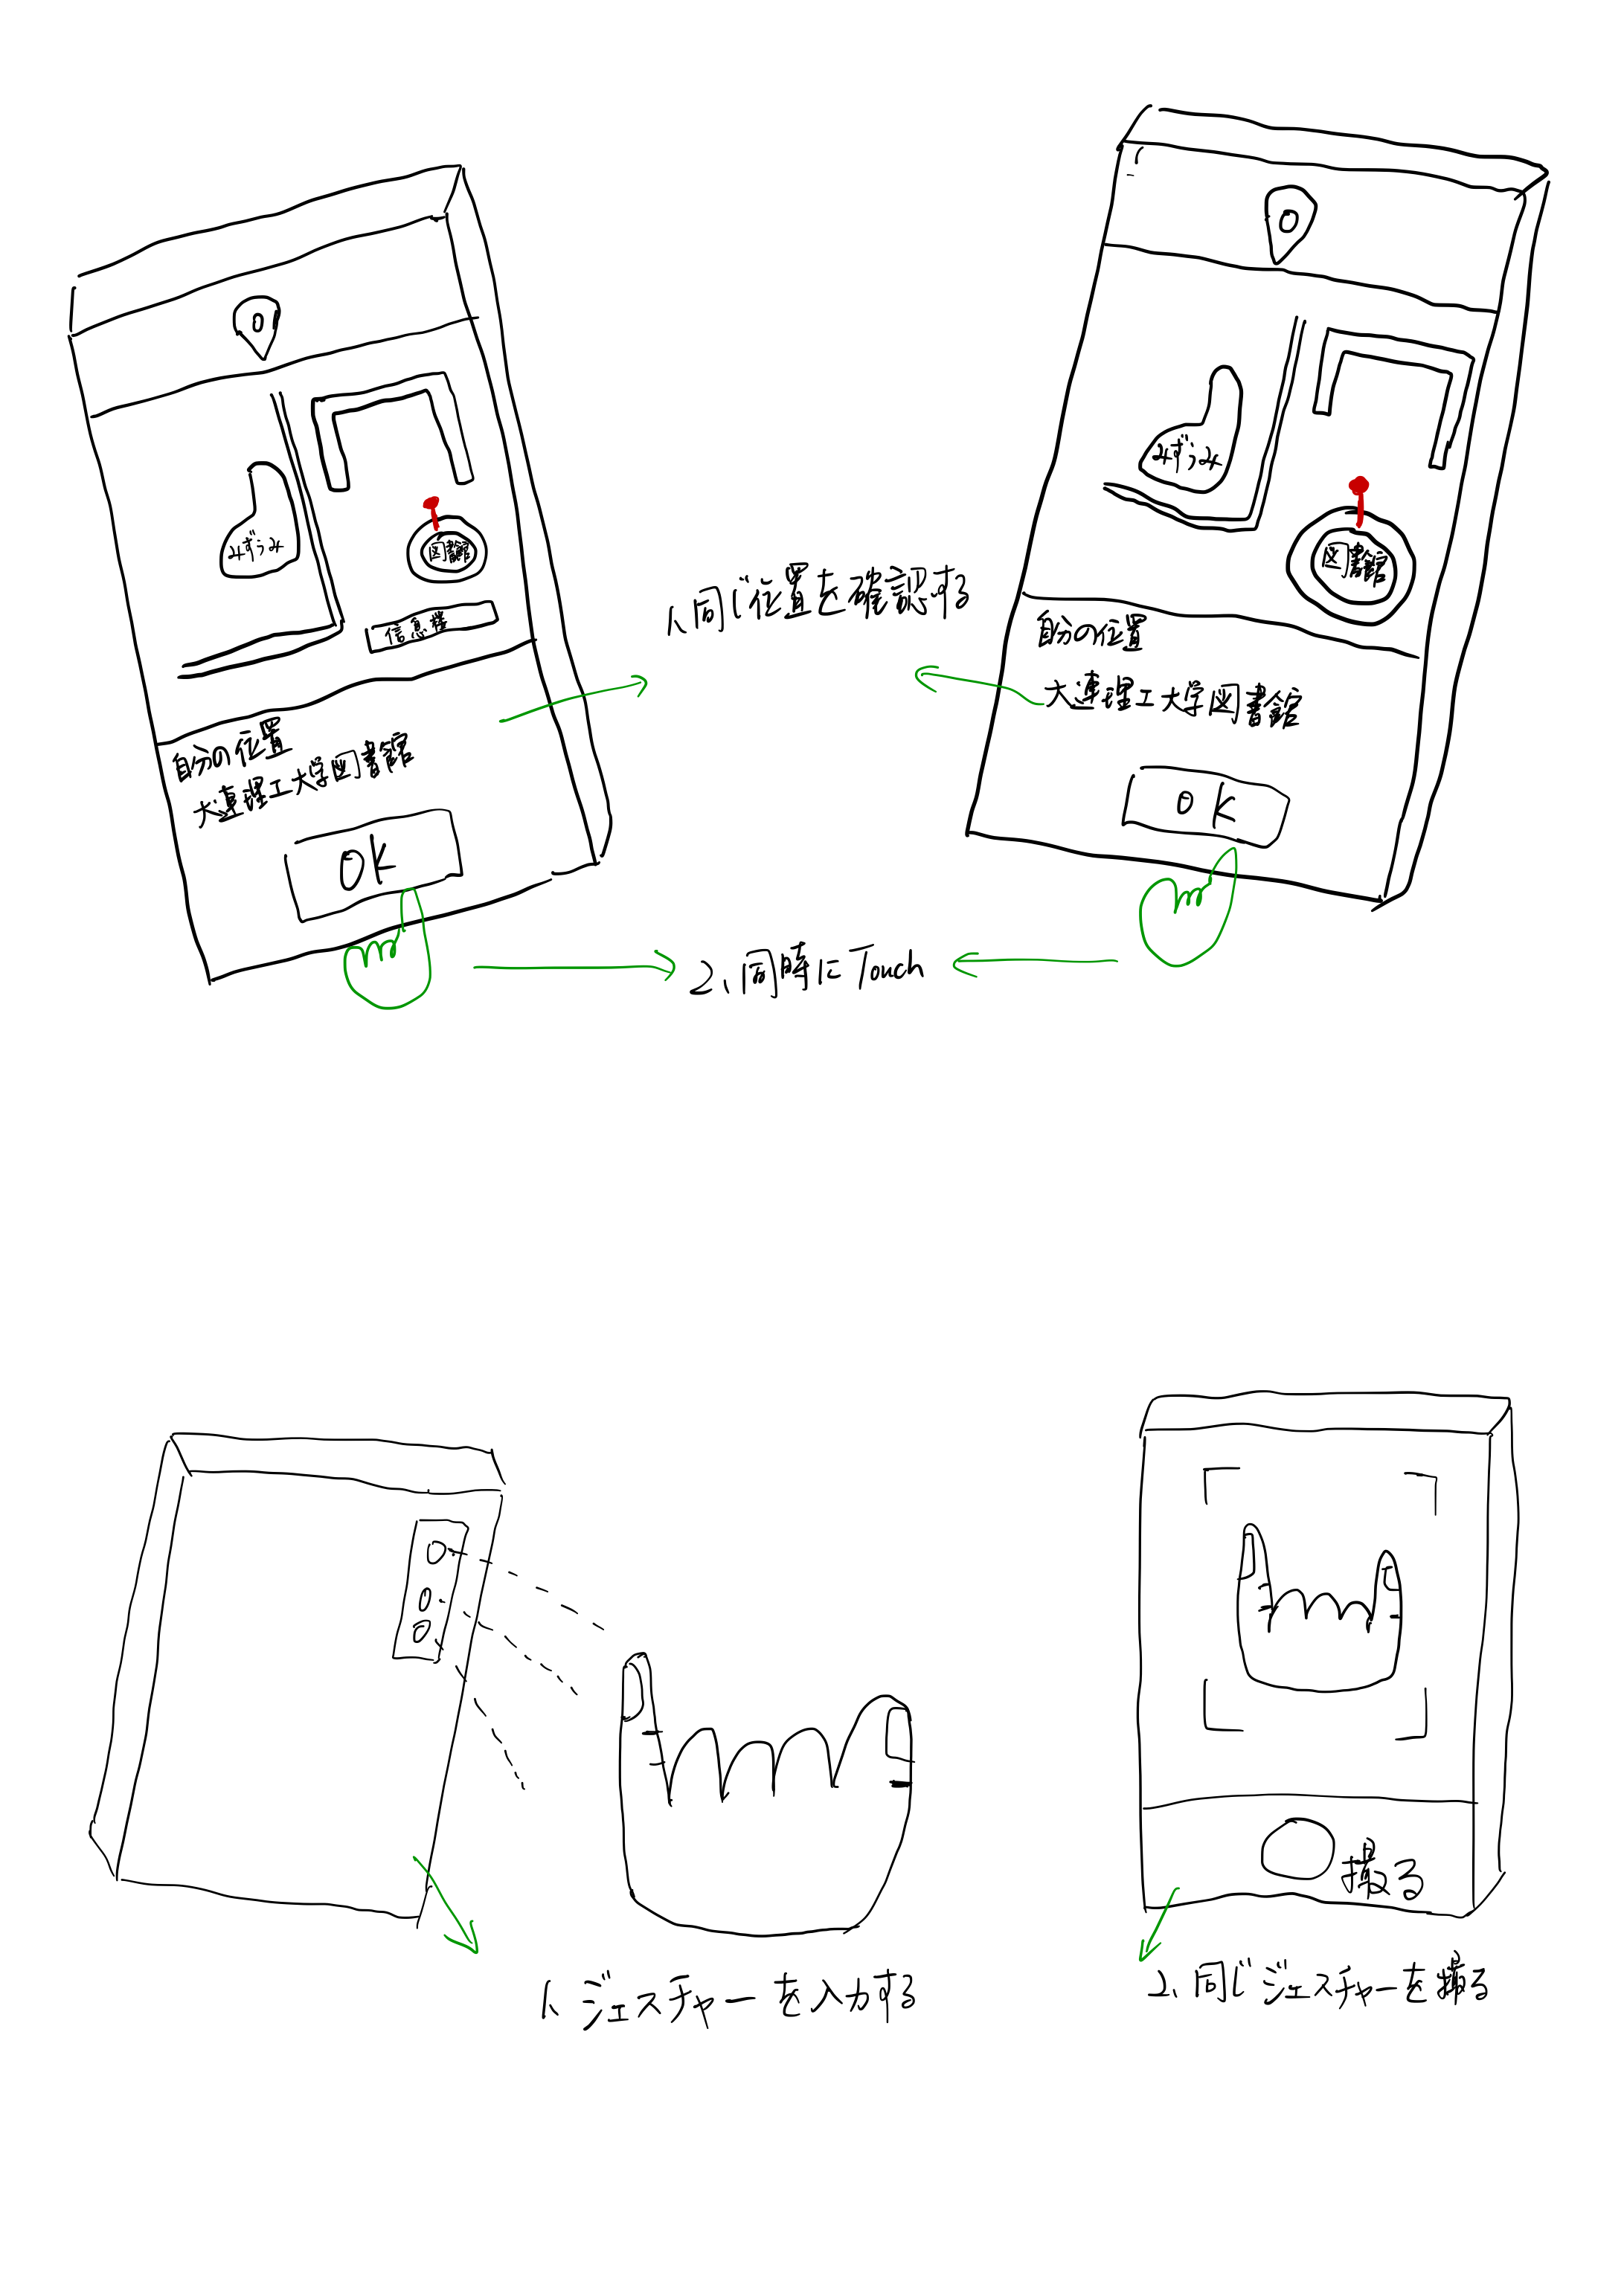 みずうみ
図書館
信息楼
自分の位置
大連理工大学図書館
OK
1、同じ位置を確認する
みずうみ
図書館
自分の位置
大連理工大学図書館
OK
2、同時にTouch
撮る
1、ジェスチャーを入力する
2、同じジェスチャーを撮る